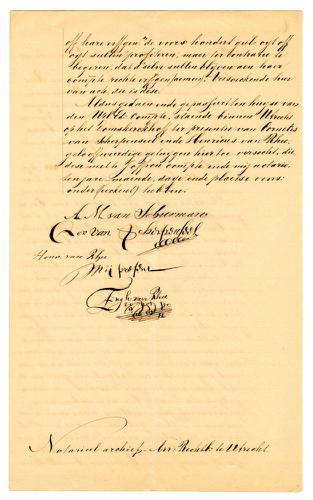 off hare erffgen. de voors. hondert gul. oyt off
oyt sullen profiteren, maer ter contrarie
begeren, dat d' selve sullen blyven aen haer
comple. rechte erffgenaemen. Versoeckende hier
van acte, die is dese.
Aldus gedaen ende gepasseert ten huyse van
den Wel Ed. Comple., staende binnen Utrecht
op het Domskerckhoff ter presentie van Cornelis
van Scherpenseel ende Henricus van Rhee,
geloofweerdige getuygen hier toe versocht, die
dese met de comple ende my notaris
ten jare, maende, dage ende plaetse voors.
onderteeckent hebben.
A. M. van Schurman
Cor van Scherpenseel
Henr. van Rhee
My present
van Rhee
Notarieel archief. Arr. Rechtb. te Utrecht